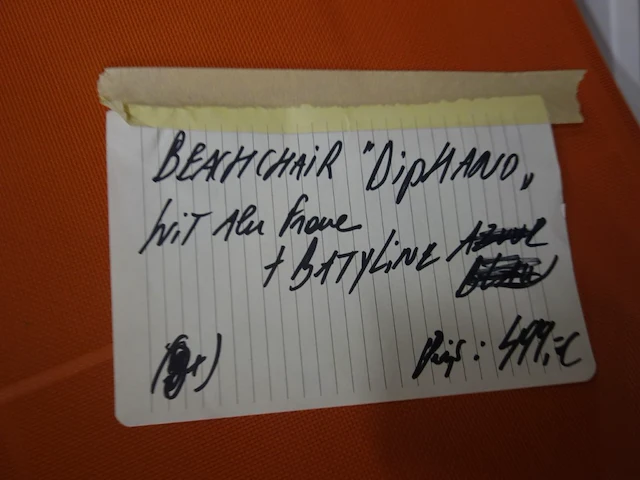 BEACHCHAIR "DipHANO„
WiT Alu Frame
+ BATYLiNE
Prijs: 499,-€